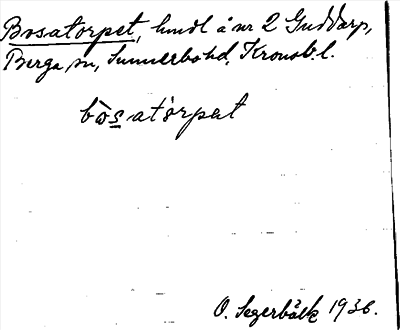 Bosatorpet, hmdl å nr 2 Guddarp,
Berga sn, Sunnerbo hd, Kronob. l.
bòsatòrpat
O. Segerbäck 1936.